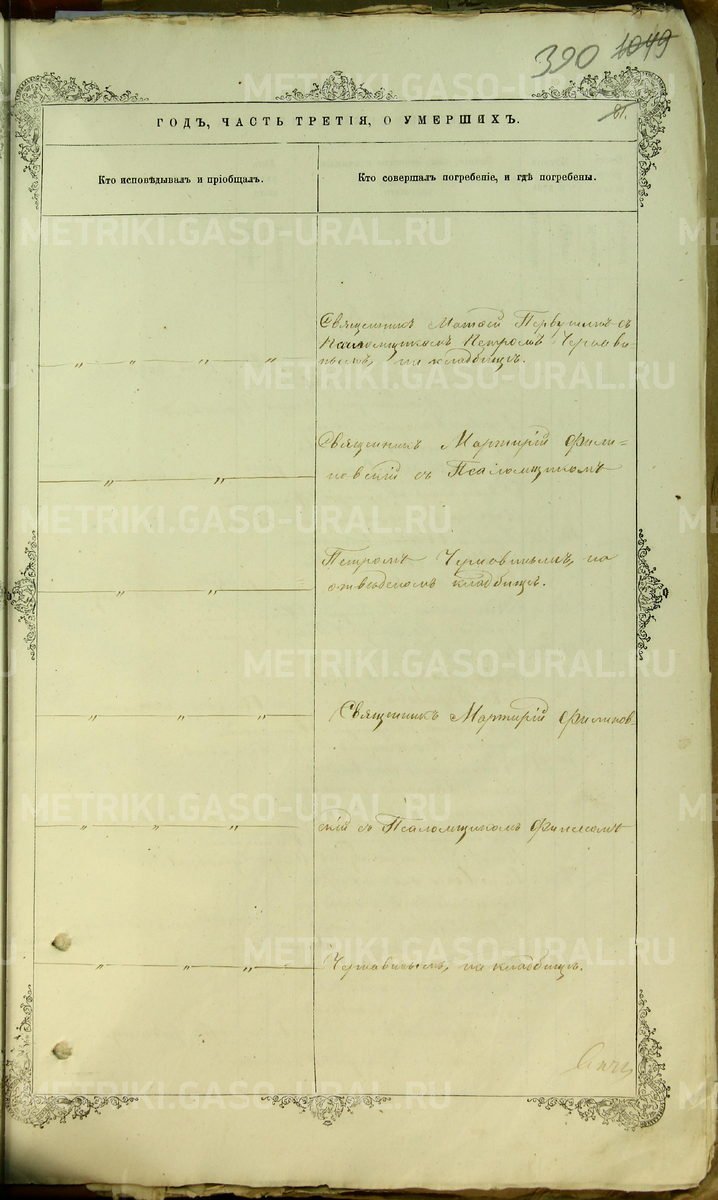 390 1049
81.
ГОДЪ, ЧАСТЬ ТРЕТІЯ, О УМЕРШИХЪ.
Кто исповѣдывалъ и пріобщалъ.
Кто совершалъ погребеніе, и гдѣ погребены.
Священникъ Матѳей Первушинъ съ
Псаломщикомъ Петромъ Чернави-
нымъ, на кладбищѣ.
„ „ „ „
Священникъ Мартирій Филин-
овскій съ Псаломщикомъ
„ „
Петромъ Чернавинымъ, на
отводномъ кладбищѣ.
„ „
Священникъ Мартирій Филинов-
„ „ „
скій съ Псаломщикомъ
„ „ „
Чернавинымъ, на кладбищѣ.
„ „ „
METRIKI.GASO-URAL.RU